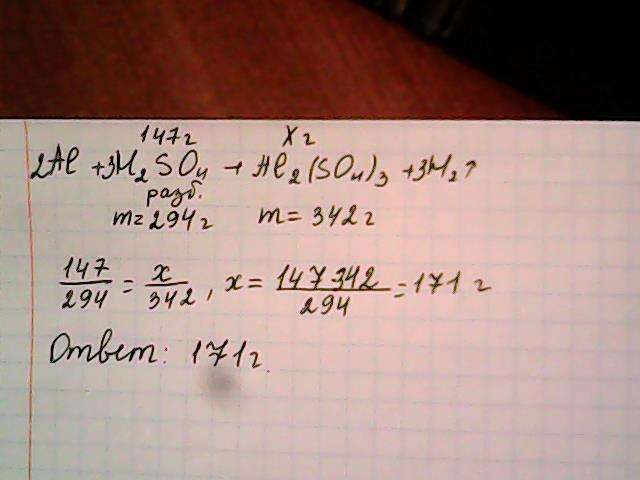 147г X г
2Al + 3H₂SO₄ → Al₂(SO₄)₃ + 3H₂↑
разб.
m = 294 г m = 342 г
147/294 = x/342, x = 147 342/294 = 171 г
Ответ: 171г.